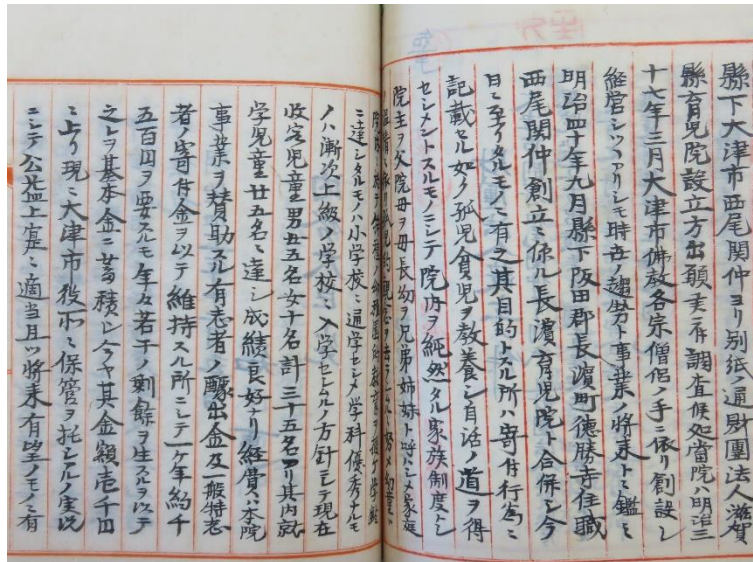 縣下大津市西尾関仲ヨリ別紙ノ通財團法人滋賀
縣育児院設立方出願ニ付調査候処当院ハ明治三
十七年三月大津市佛教各宗僧侶ノ手ニ依リ創設シ
経営シツヽアリシモ時世ノ趨勢ト事業ノ将来トニ鑑ミ
明治四十年九月縣下阪田郡長濵町徳勝寺住職
西尾関仲創立ニ係ル長濵育児院ト合併シ今
日ニ至リタルモノニ有之其目的トスル所ハ寄付行為ニ
記載セル如ク孤児貧児ヲ教養シ自活ノ道ヲ得
セシメントスルモノニシテ院内ヲ純然タル家族制度トシ
院主ヲ父院母ヲ母長幼ヲ兄弟姉妹ト呼ハシメ家庭
ニ達シタルモノハ小学校ニ通学セシメ学科優秀ナルモ
ノハ漸次上級ノ学校ニ入学セシムル方針ニシテ現在
収容児童男廿五名女十名計三十五名アリ其内就
学児童廿五名ニ達シ成績良好ナリ経費ハ本院
事業ヲ賛助スル有志者ノ醵出金及一般特志
者ノ寄付金ヲ以テ維持スル所ニシテ一ケ年約千
五百円ヲ要スルモ年々若干ノ剰餘ヲ生スルヲ以テ
之レヲ基本金ニ蓄積シ今ヤ其金額壱千円
ニ上リ現ニ大津市役所ニ保管ヲ托シアルノ実況
ニシテ公益上寔ニ適当且ツ将来有望ノモノニ有